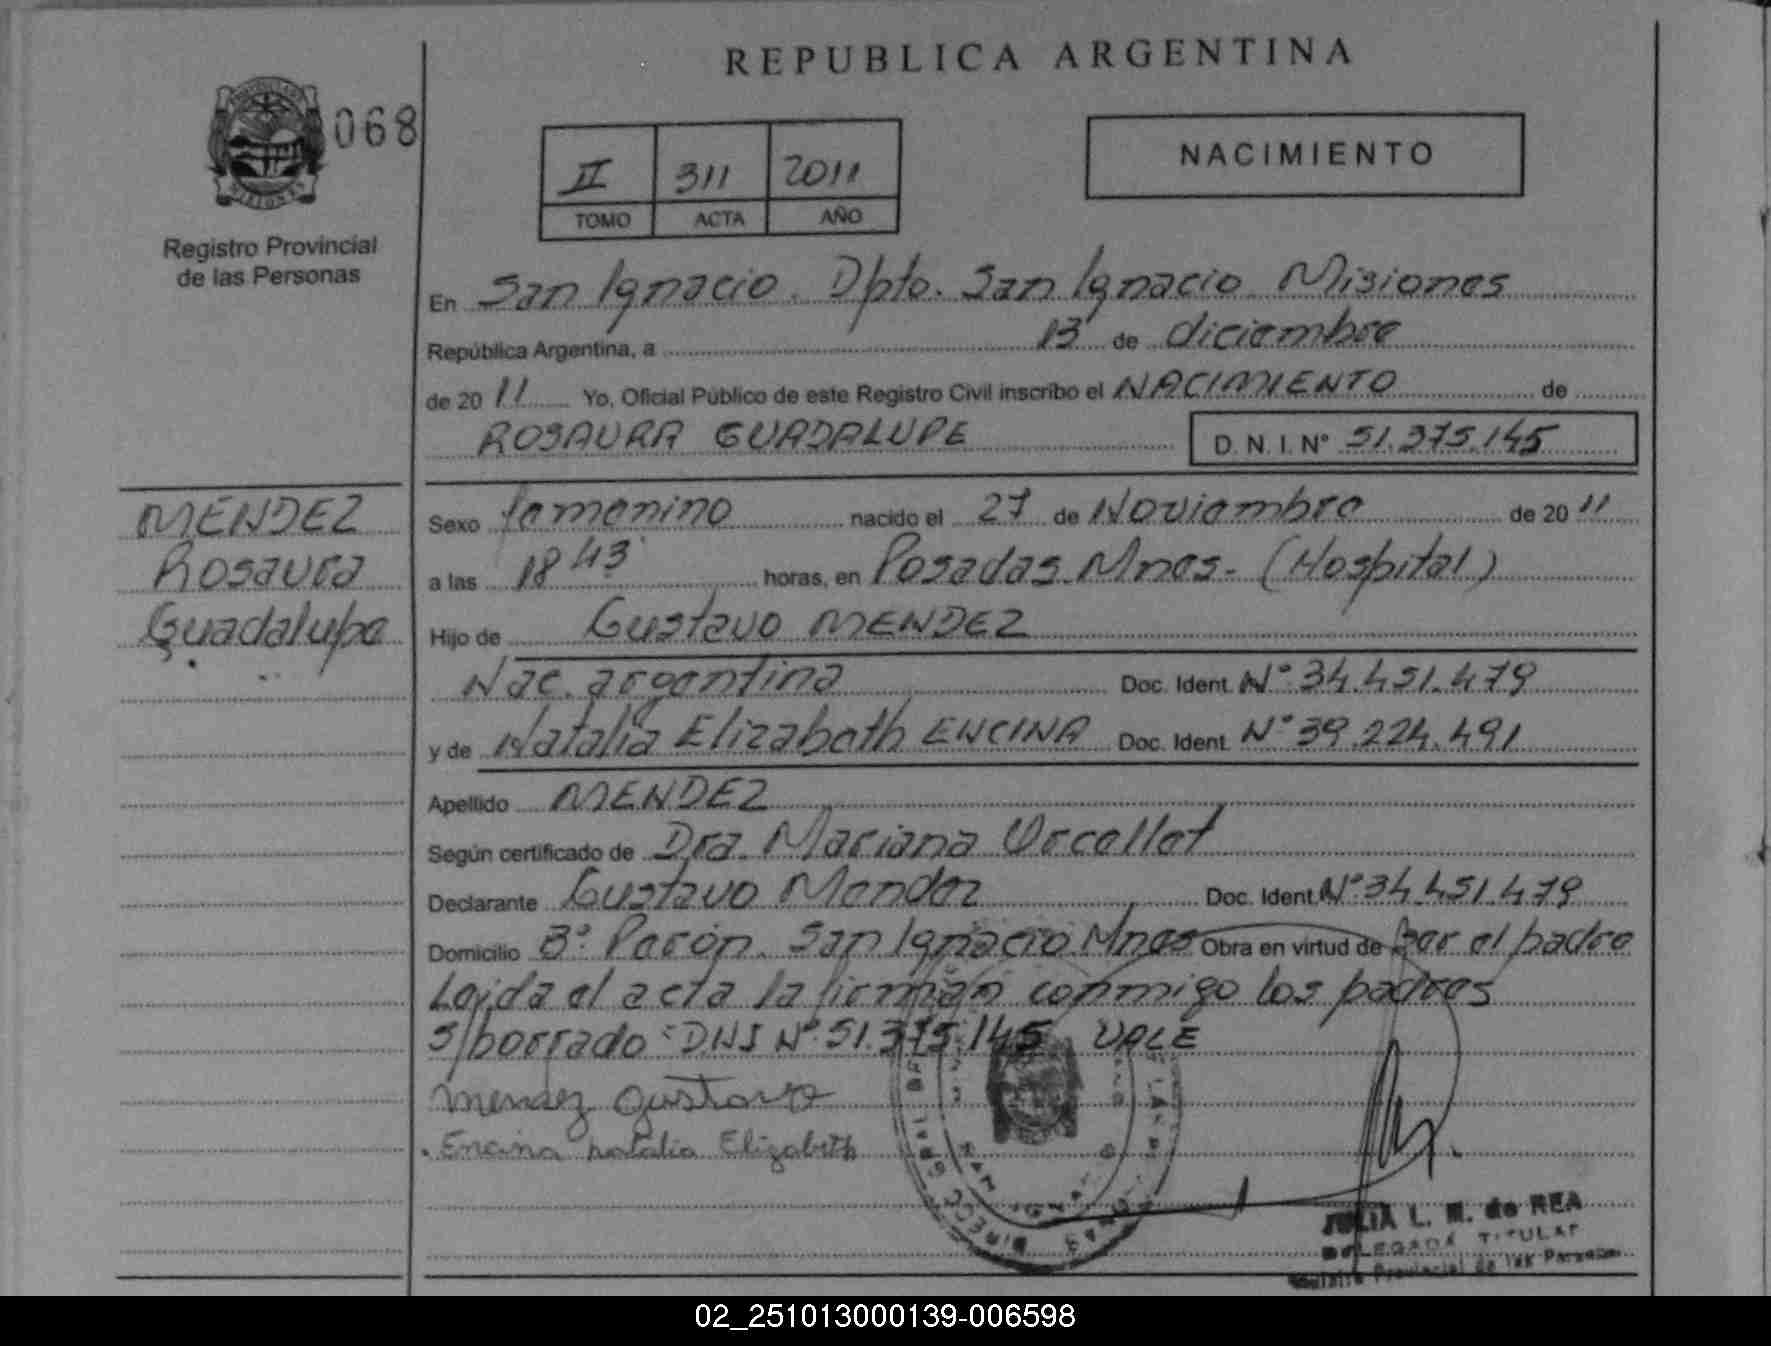 REPUBLICA ARGENTINA
068
NACIMIENTO
II 311 2011
TOMO ACTA AÑO
Registro Provincial
de las Personas
En San Ignacio. Dpto. San Ignacio Misiones
República Argentina, a 13 de diciembre
de 2011 Yo, Oficial Público de este Registro Civil inscribo el NACIMIENTO de
ROSAURA GUADALUPE D. N. I. Nº 51.375.145
MENDEZ
Rosaura
Guadalupe
Sexo femenino nacido el 27 de Noviembre de 2011
a las 18 43 horas, en Posadas Mnes. (Hospital)
Hijo de Gustavo MENDEZ
Nac. argentina Doc. Ident. Nº 34.451.479
y de Natalia Elizabeth ENCINA Doc. Ident. Nº 39.224.491
Apellido MENDEZ
Según certificado de Dra. Mariana
Declarante Gustavo Mendez Doc. Ident. Nº 34.451.479
Domicilio Bº Perón. San Ignacio Mnes Obra en virtud de ser el padre
Leída el acta la firman conmigo los padres
S/borrado: DNI Nº 51.375.145 VALE
Mendez Gustavo
Encina natalia Elizabeth
JULIA L. M. de REA
DELEGADA TITULAR
Registro Provincial de las Personas
02_251013000139-006598